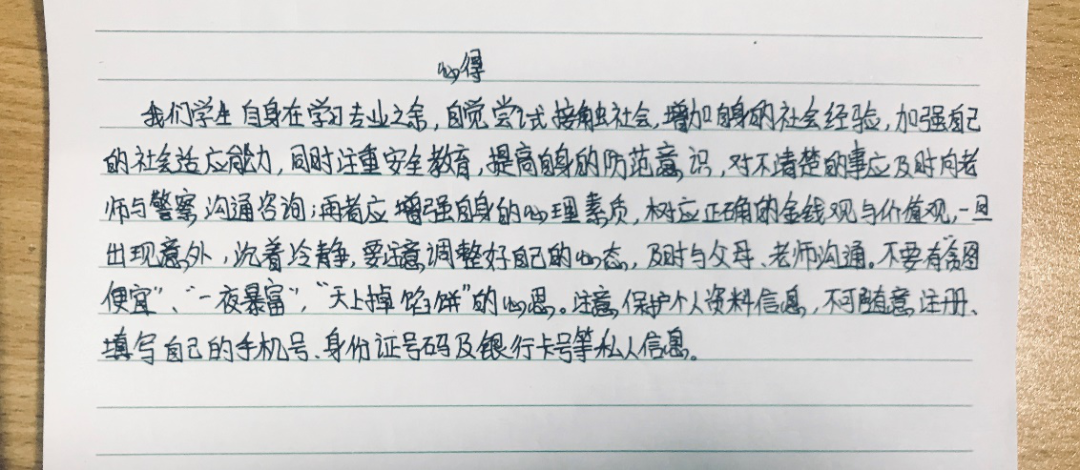 心得
我们学生自身在学习专业之余,自觉尝试接触社会,增加自身的社会经验,加强自己
的社会适应能力,同时注重安全教育,提高自身的防范意识,对不清楚的事应及时向老
师与警察沟通咨询;再者应增强自身的心理素质,树应正确的金钱观与价值观,一旦
出现意外,沉着冷静,要注意调整好自己的心态,及时与父母、老师沟通。不要有“贪图
便宜”、“一夜暴富”,“天上掉馅饼”的心思。注意保护个人资料信息,不可随意注册、
填写自己的手机号、身份证号码及银行卡号等私人信息。